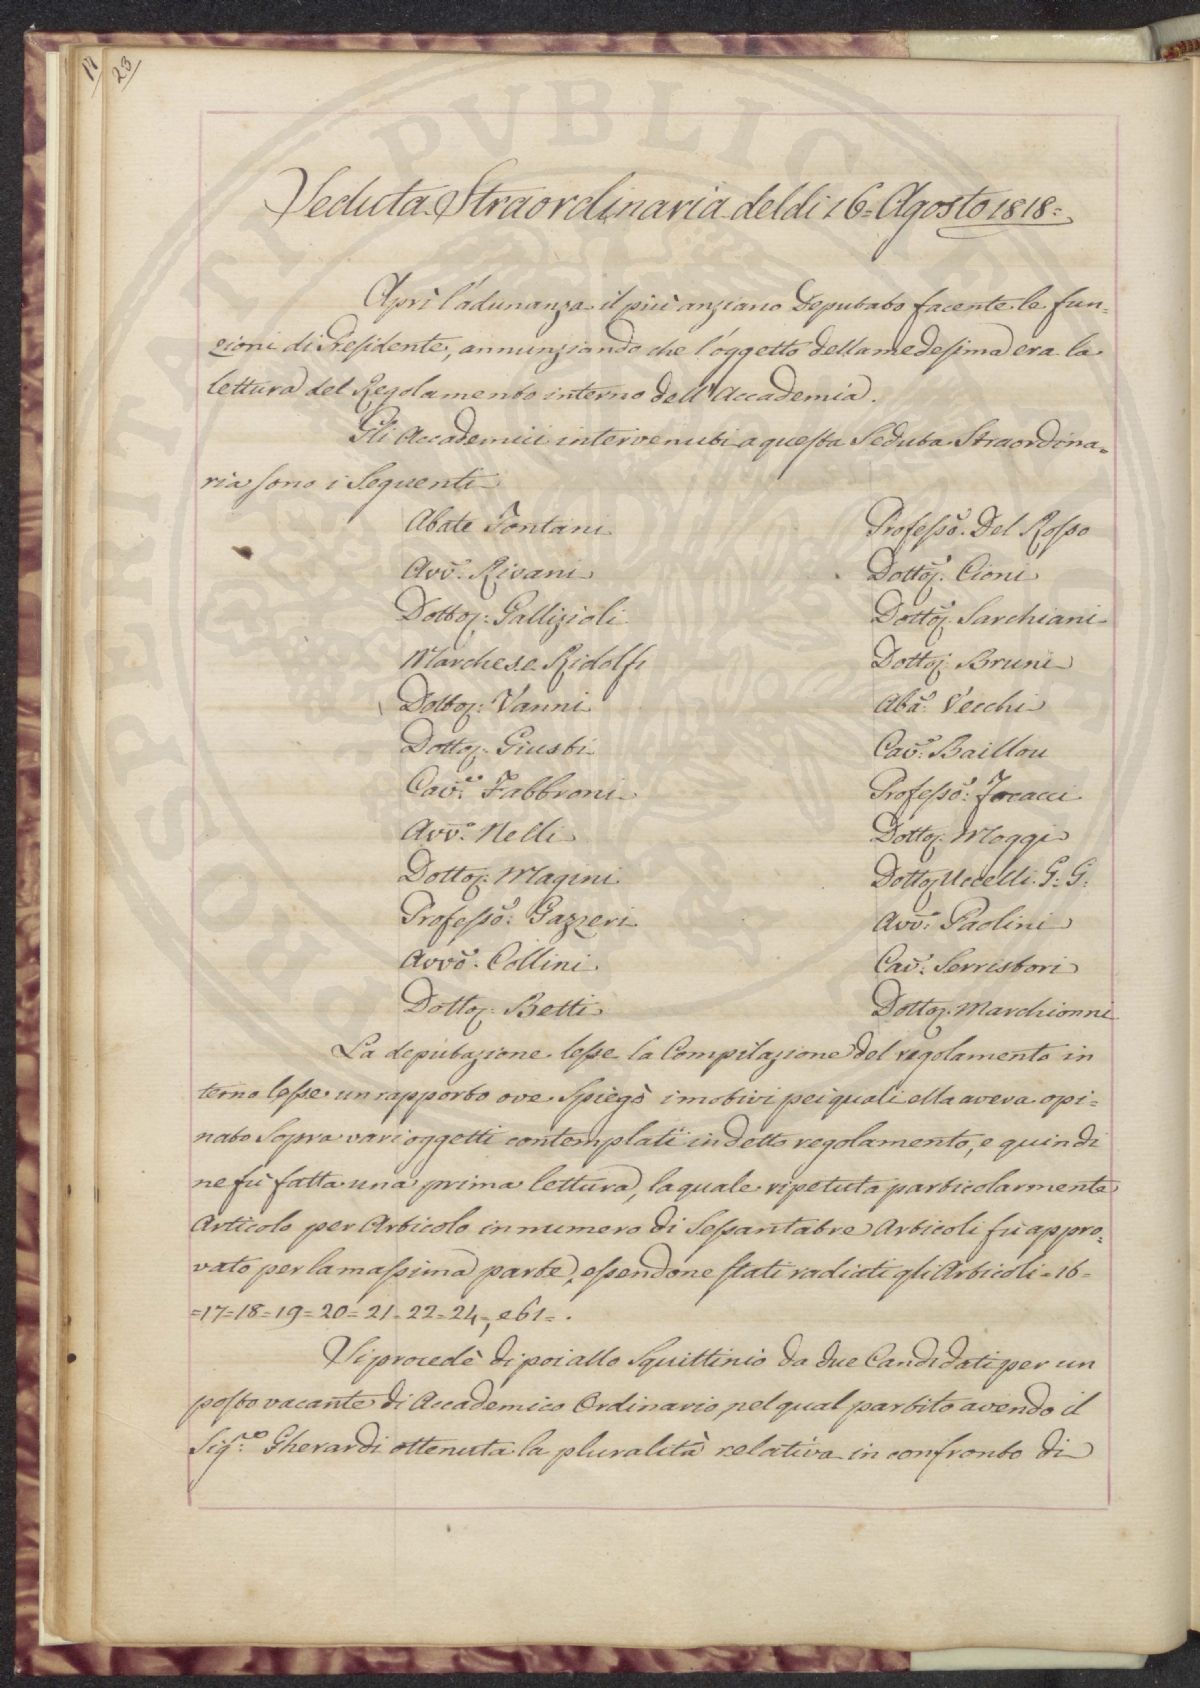 23
Seduta Straordinaria del dì 16= Agosto 1818=
Aprì l'adunanza il più anziano Deputato facente le fun=
zioni di Presidente, annunziando che l'oggetto della medesima era la
lettura del Regolamento interno dell'Accademia.
Gli Accademici intervenuti a questa Seduta Straordina=
ria sono i Seguenti
Abate Fontani
Avv.º Rivani
Dottor: Gallizioli
Marchese Ridolfi
Dottor: Vanni
Dottor: Giusti
Cav.re Fabbroni
Avv.º Nelli
Dottor: Magini
Professo.º Gazzeri
Avvo.º Collini
Dottor: Betti
Professo.º Del Rosso
Dottor: Cioni
Dottor: Sarchiani
Dottor: Bruni
Aba.º Vecchi
Cav.º Baillou
Professo.º Focacci
Dottor: Moggi
Dottor Uccelli G: G:
Avv.º Paolini
Cav.º Serristori
Dottor: Marchionni
La deputazione lesse la Compilazione del regolamento in
terno lesse un rapporto ove Spiegò i motivi pei quali ella aveva opi=
nato Sopra vari oggetti contemplati in detto regolamento, e quindi
ne fù fatta una prima lettura, la quale ripetuta particolarmente
Articolo per Articolo in numero di Sessantatre Articoli fù appro=
vato per la massima parte, essendone stati radiati gli Articoli = 16 =
= 17 = 18 = 19 = 20 = 21 = 22 = 24 =, e 61 = .
Si procedè di poi allo Squittinio da due Candidati per un
posto vacante di Accademico Ordinario, nel qual partito avendo il
Sig.re Gherardi ottenuta la pluralità relativa in confronto di